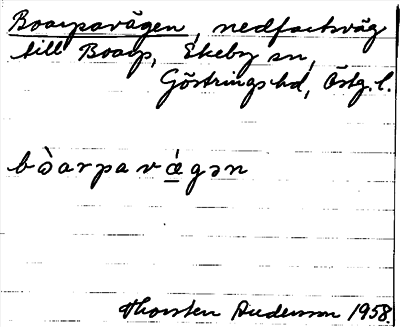 Boarpavägen, nedfartsväg
till Boarp, Ekeby sn,
Göstrings hd, Östg. l.
bòarpavǽgən
Thorsten Andersson 1958